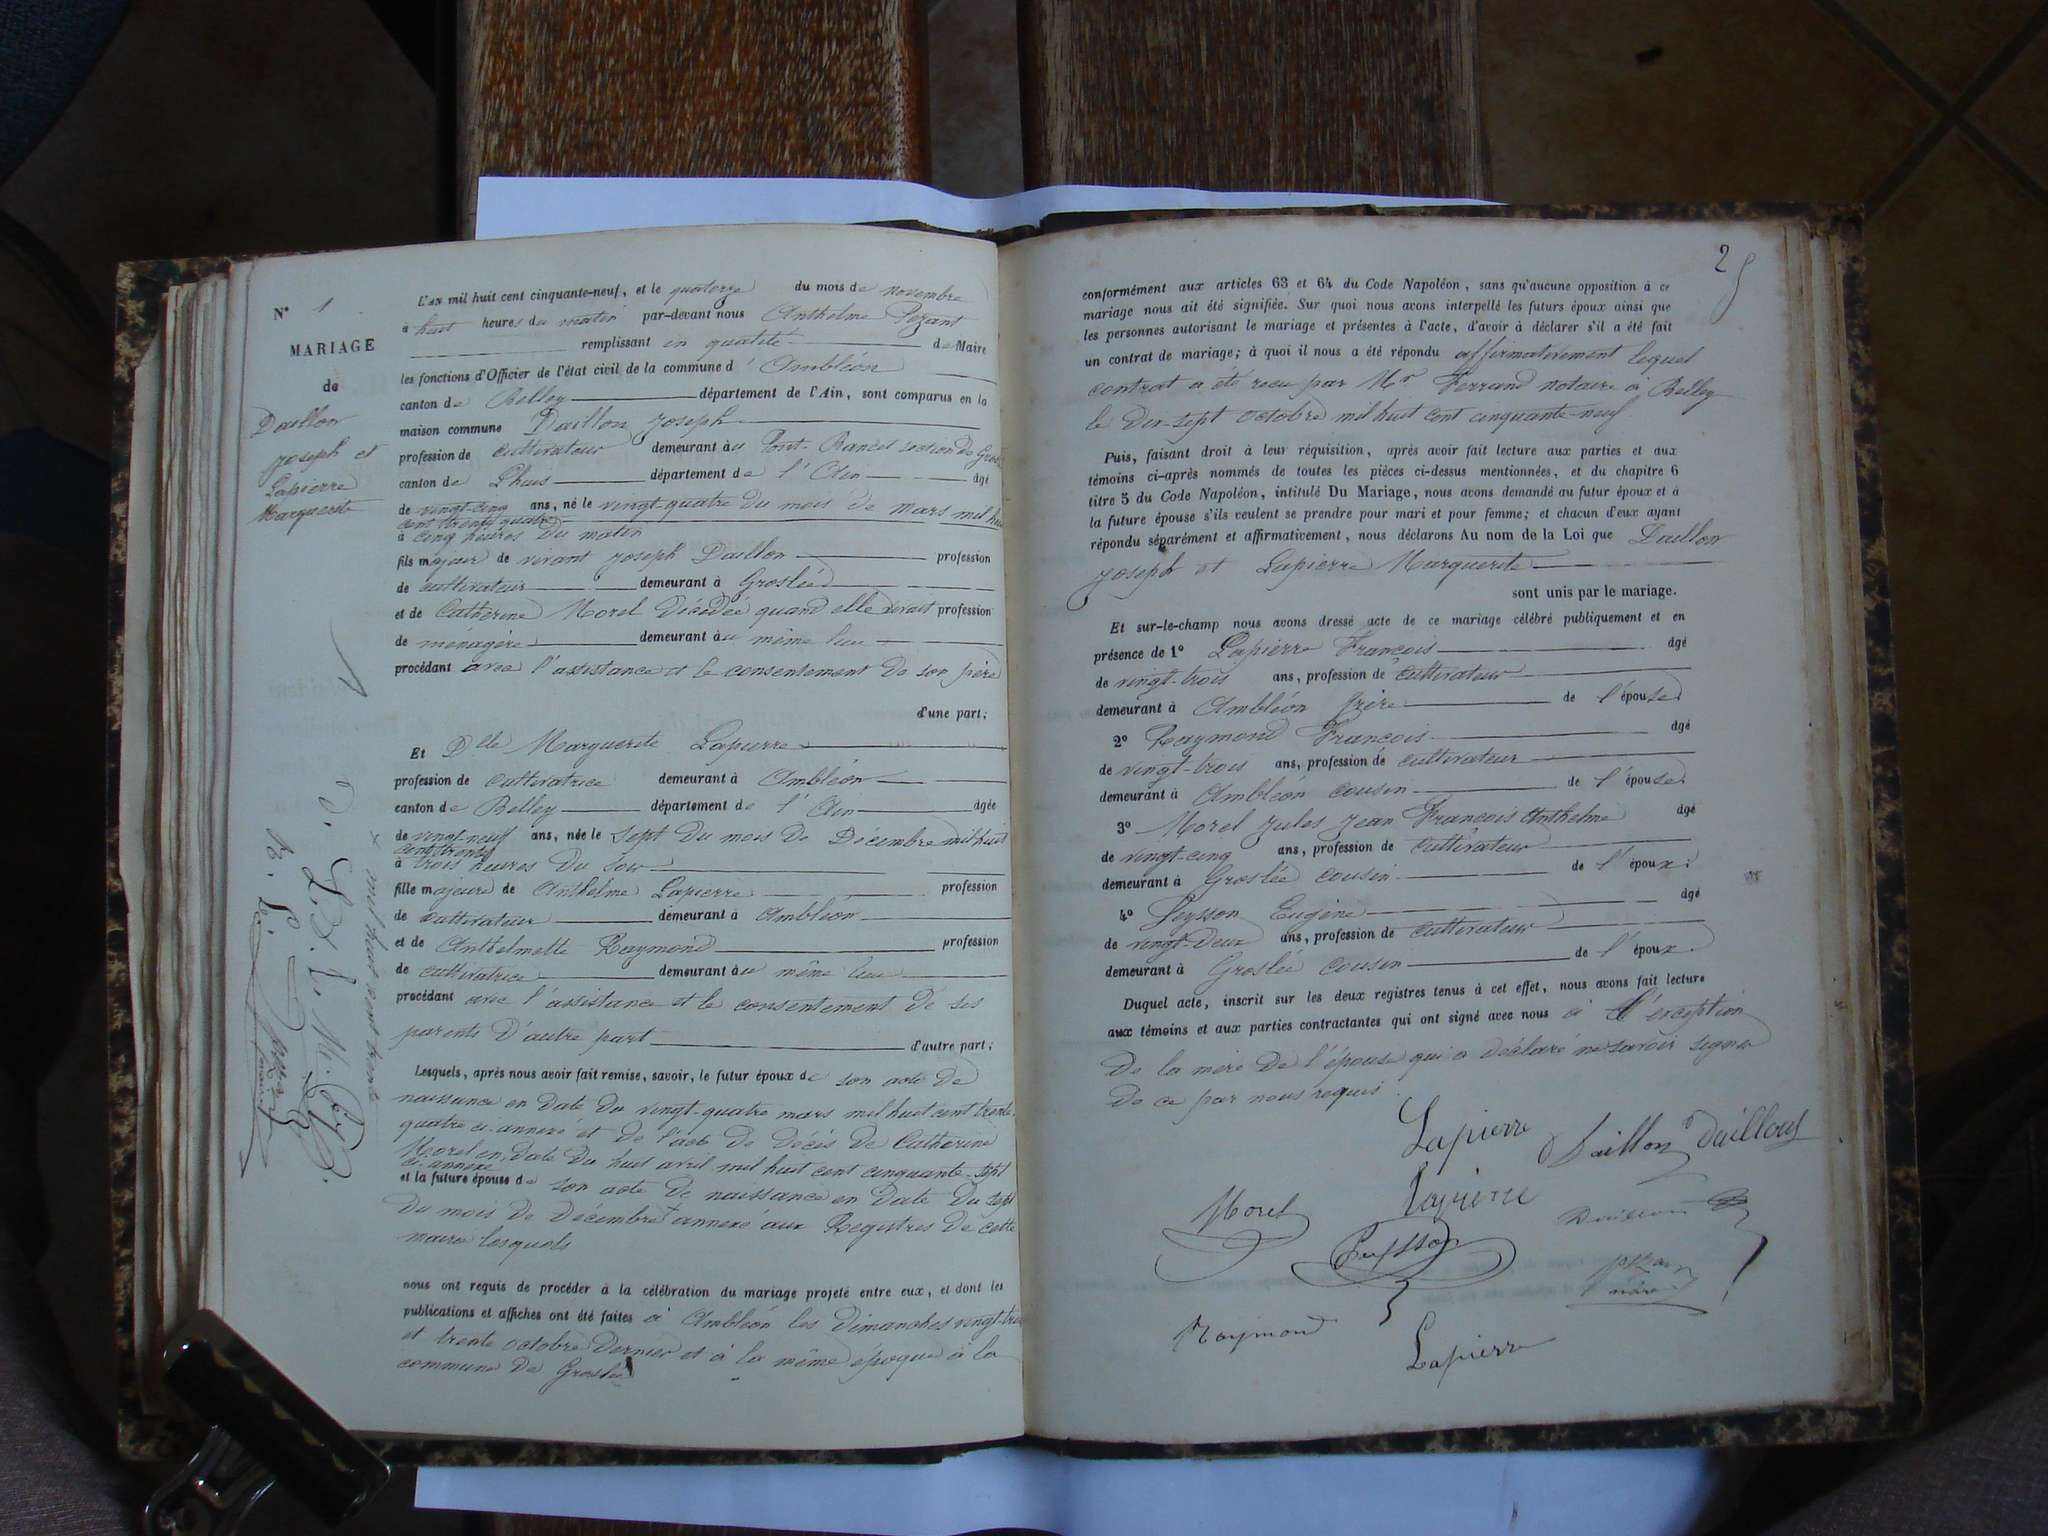 N° 1
MARIAGE
de
Daillon
Joseph et
Lapierre
Marguerite
L'AN mil huit cent cinquante-neuf, et le quatorze du mois de novembre
à huit heures du matin par-devant nous Anthelme Pezant
remplissant en qualité de Maire
les fonctions d'Officier de l'état civil de la commune d'Ambléon
canton de Belley département de l'Ain, sont comparus en la
maison commune Daillon Joseph
profession de cultivateur demeurant au Pont Bancet section de Groslée
canton de Lhuis département de l'Ain âgé
de vingt-cinq ans, né le vingt-quatre du mois de mars mil huit
cent trente quatre
à cinq heures du matin
fils majeur de vivant Joseph Daillon profession
de cultivateur demeurant à Groslée
et de Catherine Morel décédée quand elle vivait profession
de ménagère demeurant au même lieu
procédant avec l'assistance et le consentement de son père
d'une part;
Et Dlle Marguerite Lapierre
profession de cultivatrice demeurant à Ambléon
canton de Belley département de l'Ain âgée
de vingt-neuf ans, née le sept du mois de Décembre mil huit
cent trente
à trois heures du soir
fille majeure de Anthelme Lapierre profession
de cultivateur demeurant à Ambléon
et de Anthelmette Raymond profession
de cultivatrice demeurant au même lieu
procédant avec l'assistance et le consentement de ses
parents d'autre part d'autre part;
Lesquels, après nous avoir fait remise, savoir, le futur époux de son acte de
naissance en date du vingt-quatre mars mil huit cent trente
quatre ci-annexé et de l'acte de décès de Catherine
Morel en date du huit avril mil huit cent cinquante-sept
ci-annexé
et la future épouse de son acte de naissance en date du sept
du mois de décembre + annexé aux Registres de cette
mairie lesquels
nous ont requis de procéder à la célébration du mariage projeté entre eux, et dont les
publications et affiches ont été faites à Ambléon les dimanches vingt-trois
et trente octobre dernier et à la même époque à la
commune de Groslée
+ mil huit cent trente
25
conformément aux articles 63 et 64 du Code Napoléon, sans qu'aucune opposition à ce
mariage nous ait été signifiée. Sur quoi nous avons interpellé les futurs époux ainsi que
les personnes autorisant le mariage et présentes à l'acte, d'avoir à déclarer s'il a été fait
un contrat de mariage; à quoi il nous a été répondu affirmativement lequel
contrat a été reçu par Mr Ferrand notaire à Belley
le dix-sept octobre mil huit cent cinquante-neuf
Puis, faisant droit à leur réquisition, après avoir fait lecture aux parties et aux
témoins ci-après nommés de toutes les pièces ci-dessus mentionnées, et du chapitre 6
titre 5 du Code Napoléon, intitulé Du Mariage, nous avons demandé au futur époux et à
la future épouse s'ils veulent se prendre pour mari et pour femme; et chacun d'eux ayant
répondu séparément et affirmativement, nous déclarons Au nom de la Loi que Daillon
Joseph et Lapierre Marguerite
sont unis par le mariage.
Et sur-le-champ nous avons dressé acte de ce mariage célébré publiquement et en
présence de 1° Lapierre François âgé
de vingt-trois ans, profession de cultivateur
demeurant à Ambléon frère de l'épouse
2° Raymond François âgé
de vingt-trois ans, profession de cultivateur
demeurant à Ambléon cousin de l'épouse
3° Morel Jules Jean François Anthelme âgé
de vingt-cinq ans, profession de cultivateur
demeurant à Groslée cousin de l'époux
4° Peysson Eugène âgé
de vingt-deux ans, profession de cultivateur
demeurant à Groslée cousin de l'époux
Duquel acte, inscrit sur les deux registres tenus à cet effet, nous avons fait lecture
aux témoins et aux parties contractantes qui ont signé avec nous à l'exception
de la mère de l'épouse qui a déclaré ne savoir signer
de ce par nous requis
Lapierre Daillon Daillon
Morel Lapierre
Peysson
Raymond Lapierre